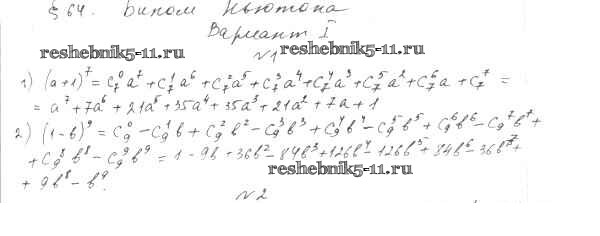 § 64. Бином Ньютона
Вариант I
reshebnik5-11.ru
№1 reshebnik5-11.ru
1) (a+1)⁷ = C₇⁰a⁷ + C₇¹a⁶ + C₇²a⁵ + C₇³a⁴ + C₇⁴a³ + C₇⁵a² + C₇⁶a + C₇⁷ =
= a⁷ + 7a⁶ + 21a⁵ + 35a⁴ + 35a³ + 21a² + 7a + 1
2) (1-b)⁹ = C₉⁰ - C₉¹b + C₉²b² - C₉³b³ + C₉⁴b⁴ - C₉⁵b⁵ + C₉⁶b⁶ - C₉⁷b⁷ +
+ C₉⁸b⁸ - C₉⁹b⁹ = 1 - 9b + 36b² - 84b³ + 126b⁴ - 126b⁵ + 84b⁶ - 36b⁷ +
reshebnik5-11.ru
+ 9b⁸ - b⁹.
№2